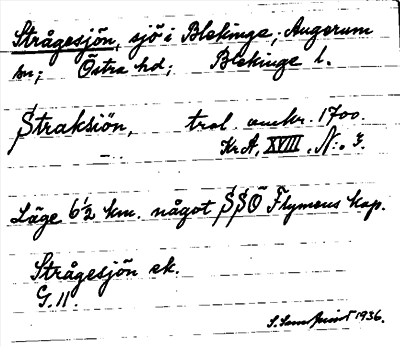 Strågesjön, sjö i Blekinge; Augerum
sn; Östra hd; Blekinge l.
Straksiön, trol. omkr. 1700.
Kr.A, XVIII, N:o 3.
Läge 6½ km. något SSÖ Flymens kap.
Strågesjön ek.
G. 11.
1936.